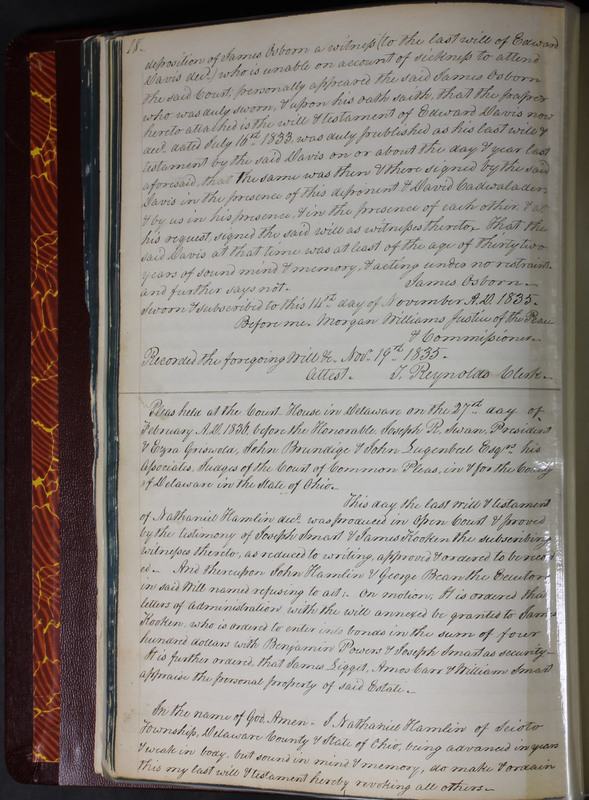 18.
deposition of James Osborn a witness (to the last will of Edward
Davis decd.) who is unable on account of sickness to attend
the said Court, personally appeared the said James Osborn
who was duly sworn, & upon his oath saith, that the paper
hereto attached is the will & testament of Edward Davis now
decd. dated July 16th 1833, was duly published as his last will &
testament by the said Davis on or about the day & year last
aforesaid, that the same was then & there signed by the said
Davis in the presence of this deponent & David Cadwalader
& by us in his presence, & in the presence of each other, & at
his request, signed the said will as witnesses thereto, that the
said Davis at that time was at least of the age of thirty two
years of sound mind & memory, & acting under no restraint
and further says not. James Osborn
Sworn & subscribed to this 14th day of November A.D. 1835.
Before me Morgan Williams Justice of the Peace
& Commissioner
Recorded the foregoing Will &c. Nov. 19th 1835.
Attest. T. Reynolds Clerk
Pleas held at the Court House in Delaware on the 27th day of
February A.D. 1836, before the Honorable Joseph R. Swan, President
& Ezra Griswold, John Brundige & John Lugenbeel Esqrs. his
Associates, Judges of the Court of Common Pleas, in & for the County
of Delaware in the State of Ohio.
This day the last Will & testament
of Nathaniel Hamlin decd. was produced in Open Court & proved
by the testimony of Joseph Smart & James Kooken the subscribing
witnesses thereto, as reduced to writing, approved & ordered to be record
ed. And thereupon John Hamlin & George Bean the Executors
in said Will named refusing to act; On motion, It is ordered that
letters of Administration with the will annexed be granted to James
Kooken, who is ordered to enter into bonds in the sum of four
hundred dollars with Benjamin Powers & Joseph Smart as security
It is further ordered that James Ligget, Amos Carr & William Smart
appraise the personal property of said Estate.
In the name of God Amen. I Nathaniel Hamlin of Scioto
Township, Delaware County & State of Ohio, being advanced in years
& weak in body, but sound in mind & memory, do make & ordain
this my last will & testament hereby revoking all others.